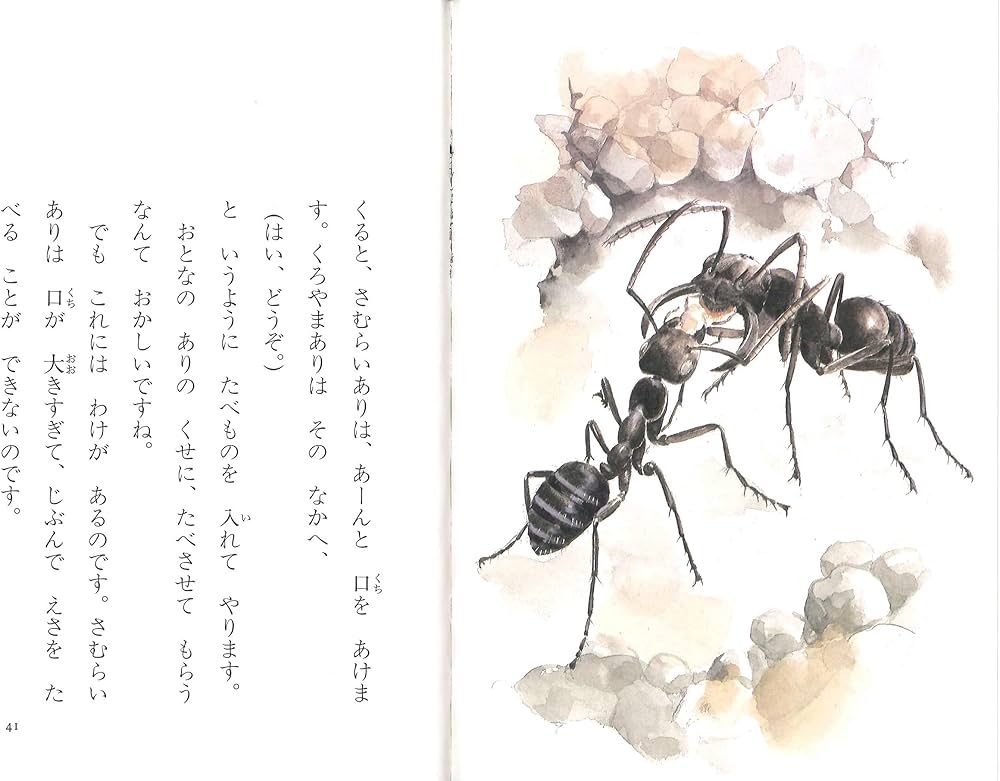 くると、さむらいありは、あーんと 口を あけま
す。くろやまありは その なかへ、
(はい、どうぞ。)
と いうように たべものを 入れて やります。
おとなの ありの くせに、たべさせて もらう
なんて おかしいですね。
でも これには わけが あるのです。さむらい
ありは 口が 大きすぎて、じぶんで えさを た
べる ことが できないのです。
41